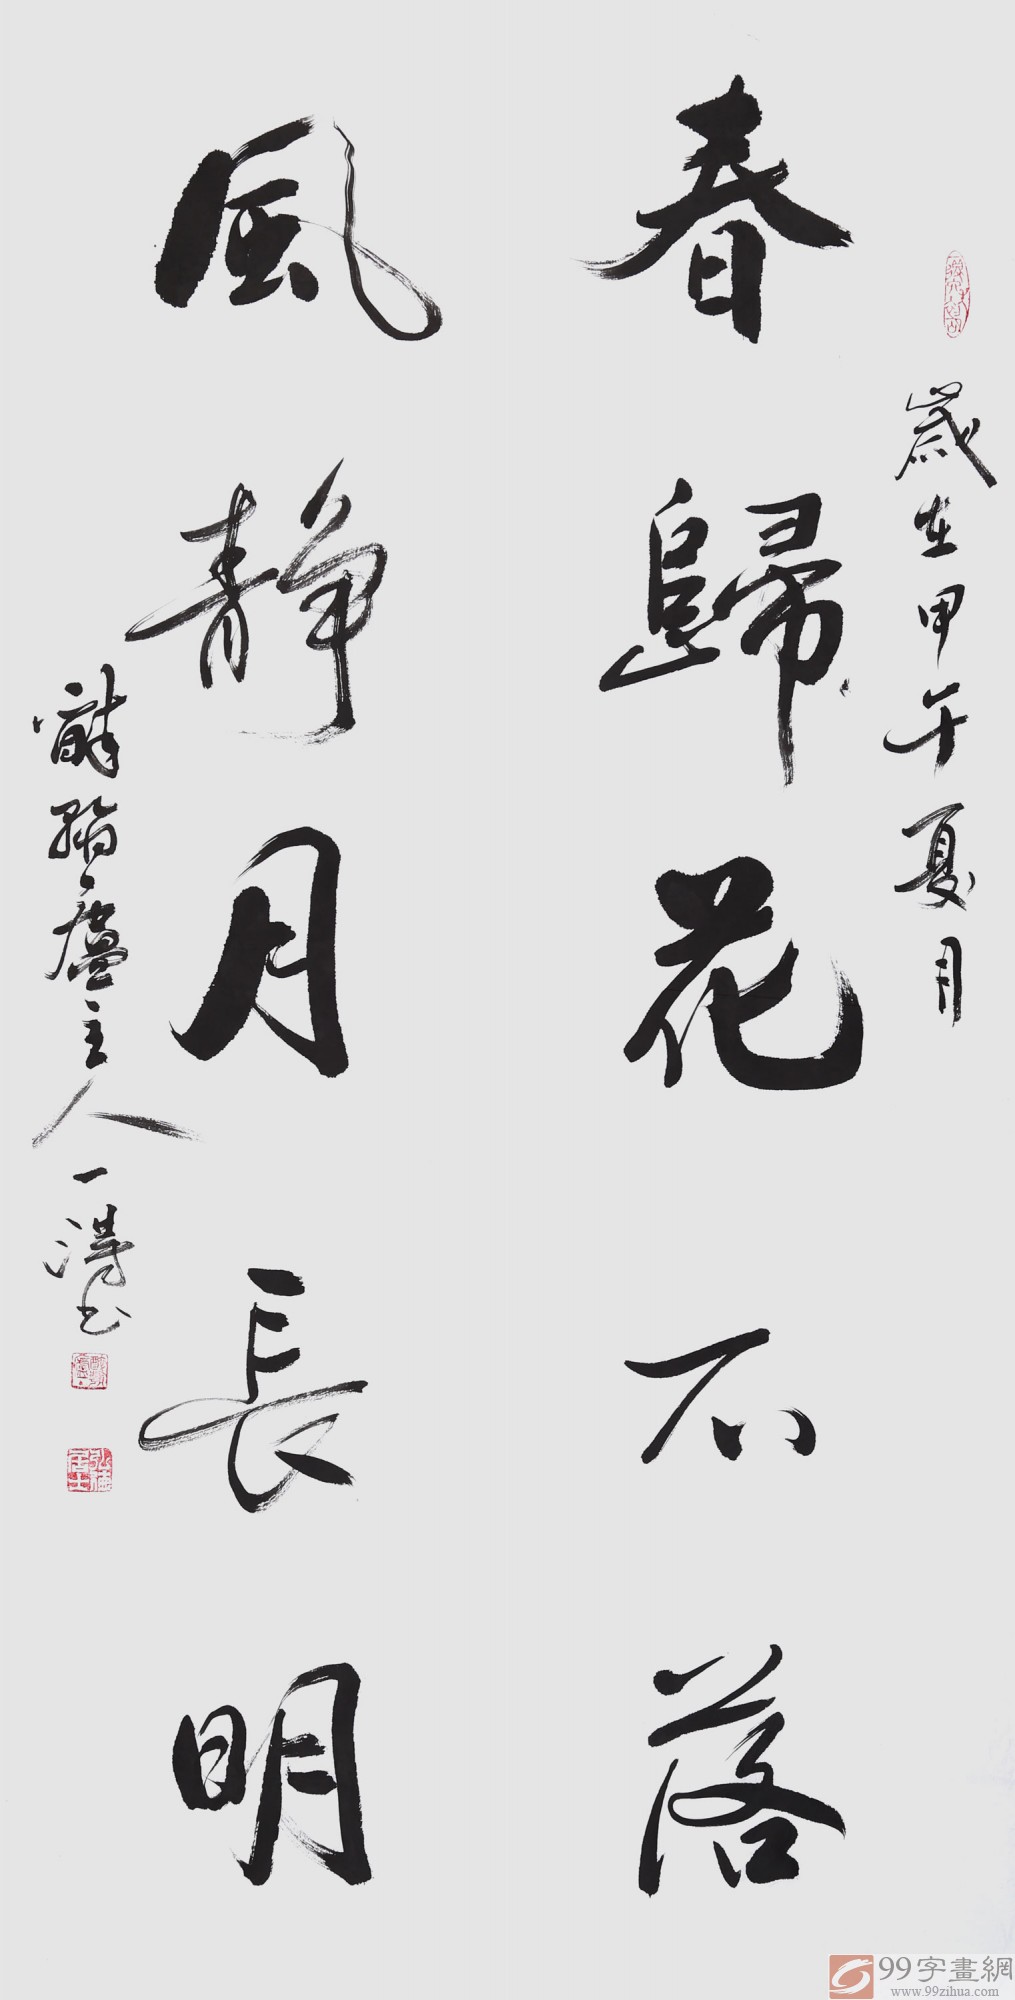 歲在甲午夏月
春歸花不落
風靜月長明
醉翰廬主人一得书
弘德居士
99字畫網
www.99zihua.com